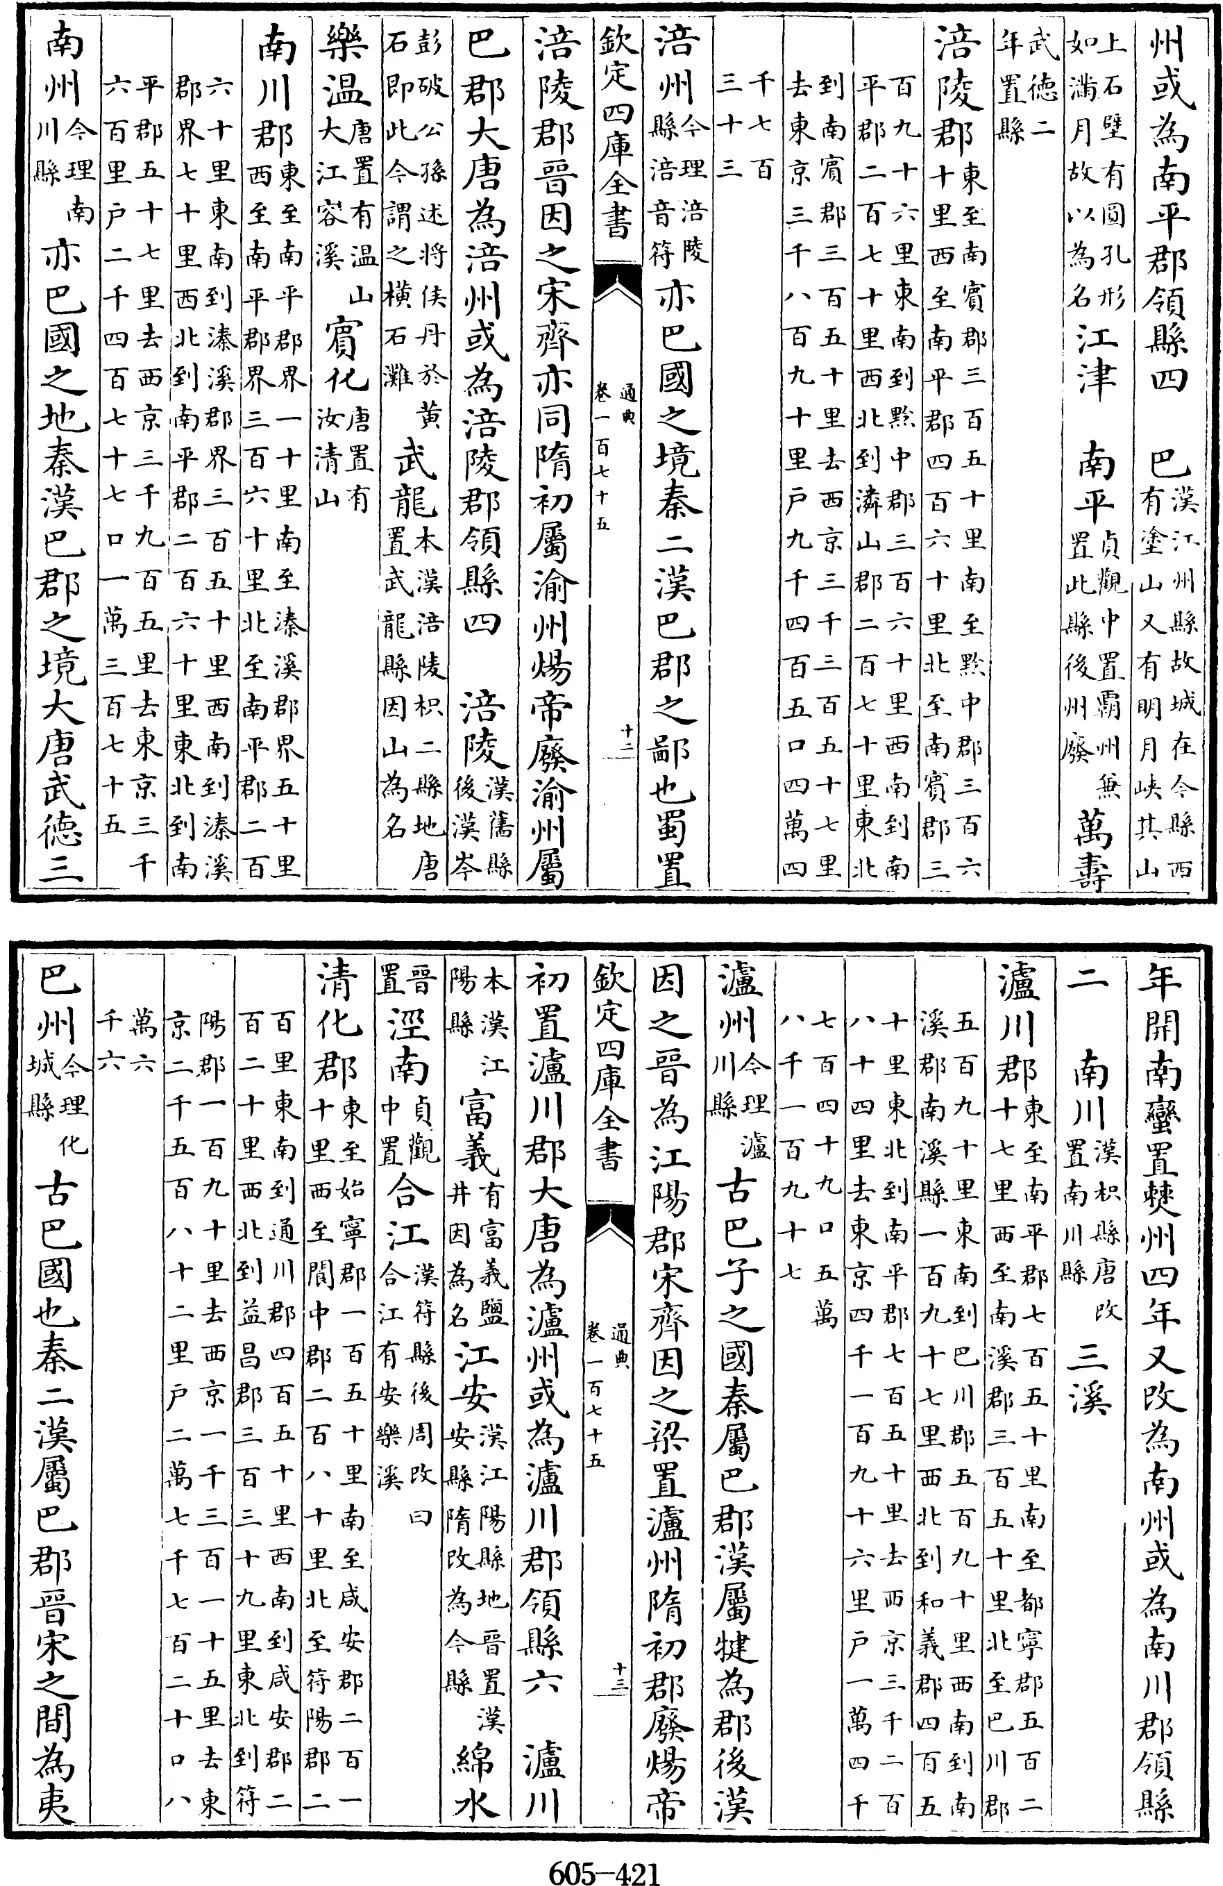 州或為南平郡領縣四　巴漢江州縣故城在今縣西有塗山又有明月峽其山
上石壁有圓孔形如滿月故以為名江津　南平貞觀中置霸州兼置此縣後州廢萬壽
武德二年置縣
涪陵郡東至南賓郡三百五十里南至黔中郡三百六十里西至南平郡四百六十里北至南賓郡三
百九十六里東南到黔中郡三百六十里西南到南平郡二百七十里西北到潾山郡二百七十里東北
到南賓郡三百五十里去西京三千三百五十七里去東京三千八百九十里户九千四百五口四萬四
千七百三十三
涪州今理涪陵縣涪音符亦巴國之境秦二漢巴郡之鄙也蜀置
欽定四庫全書　通典卷一百七十五　十二
涪陵郡晉因之宋齊亦同隋初屬渝州煬帝廢渝州屬
巴郡大唐為涪州或為涪陵郡領縣四　涪陵漢舊縣後漢岑
彭破公孫述將侯丹於黄石即此今謂之橫石灘武龍本漢涪陵枳二縣地唐置武龍縣因山為名
樂温唐置有温山大江容溪賓化唐置有汝清山
南川郡東至南平郡界一十里南至溱溪郡界五十里西至南平郡界三百六十里北至南平郡二百
六十里東南到溱溪郡界三百五十里西南到溱溪郡界七十里西北到南平郡二百六十里東北到南
平郡五十七里去西京三千九百五里去東京三千六百里户二千四百七十七口一萬三百七十五
南州今理南川縣亦巴國之地秦漢巴郡之境大唐武德三
年開南蠻置僰州四年又改為南州或為南川郡領縣
二　南川漢枳縣唐改置南川縣三溪
瀘川郡東至南平郡七百五十里南至都寧郡五百二十七里西至南溪郡三百五十里北至巴川郡
五百九十里東南到巴川郡五百九十里西南到南溪郡南溪縣一百九十七里西北到和義郡四百五
十里東北到南平郡七百五十里去西京三千二百八十四里去東京四千一百九十六里户一萬四千
七百四十九口五萬八千一百九十七
瀘州今理瀘川縣古巴子之國秦屬巴郡漢屬犍為郡後漢
因之晉為江陽郡宋齊因之梁置瀘州隋初郡廢煬帝
欽定四庫全書　通典卷一百七十五　十三
初置瀘川郡大唐為瀘州或為瀘川郡領縣六　瀘川
本漢江陽縣富義有富義鹽井因為名江安漢江陽縣地晉置漢安縣隋改為今縣綿水
晉置涇南貞觀中置合江漢符縣後周改曰合江有安樂溪
清化郡東至始寧郡一百五十里南至咸安郡二百一十里西至閬中郡二百八十里北至符陽郡二
百里東南到通川郡四百五十里西南到咸安郡二百二十里西北到益昌郡三百三十九里東北到符
陽郡一百九十里去西京一千三百一十五里去東京二千五百八十二里户二萬七千七百二十口八
萬六千六
巴州今理化城縣古巴國也秦二漢屬巴郡晉宋之間為夷
605-421